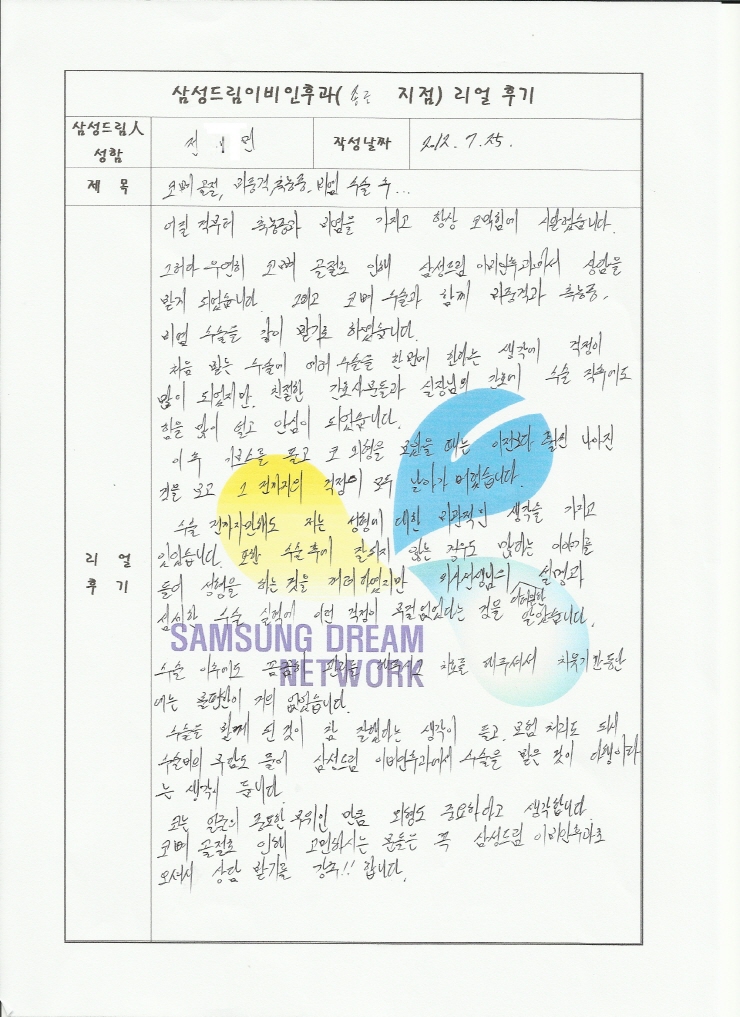 삼성드림이비인후과( 송근 지점) 리얼 후기
삼성드림人
성함
전 면
작성날짜
2012. 7. 25.
제 목
코뼈 골절, 비중격, 축농증, 비염 수술 후...
어릴 적부터 축농증과 비염을 가지고 항상 코막힘에 시달렸습니다.
그러다 우연히 코뼈 골절로 인해 삼성드림 이비인후과에서 상담을
받게 되었습니다. 그리고 코뼈 수술과 함께 비중격과 축농증,
비염 수술을 같이 받기로 하였습니다.
처음 받는 수술에 여러 수술을 한번에 한다는 생각에 걱정이
많이 되었지만, 친절한 간호사분들과 실장님의 간호에 수술 직후에도
힘을 많이 얻고 안심이 되었습니다.
이 후 기브스를 풀고 코 외형을 보았을 때는 이전보다 훨씬 나아진
것을 보고 그 전까지의 걱정이 모두 날아가 버렸습니다.
수술 전까지만해도 저는 성형에 대한 비관적인 생각을 가지고
있었습니다. 또한 수술후에 잘되지 않는 경우도 많다는 이야기를
들어 성형을 하는 것을 꺼려하였지만 의사선생님의 설명과
섬세한 수술 실력에 이런 걱정이 필요없었다는 것을 알았습니다.
SAMSUNG DREAM
NETWORK
수술 이후에도 꼼꼼하게 관리를 해주시고 치료를 해주셔서 치유기간동안
에는 불편함이 거의 없었습니다.
수술을 함께 한 것이 참 잘했다는 생각이 들고, 보험 처리도 되서
수술비의 부담도 줄어 삼성드림 이비인후과에서 수술을 받은 것이 다행이라
는 생각이 듭니다.
코는 얼굴의 중요한 부위인 만큼 외형도 중요하다고 생각합니다.
코뼈 골절로 인해 고민하시는 분들은 꼭 삼성드림 이비인후과로
오셔서 상담 받기를 강추!! 합니다.
리 얼
후 기